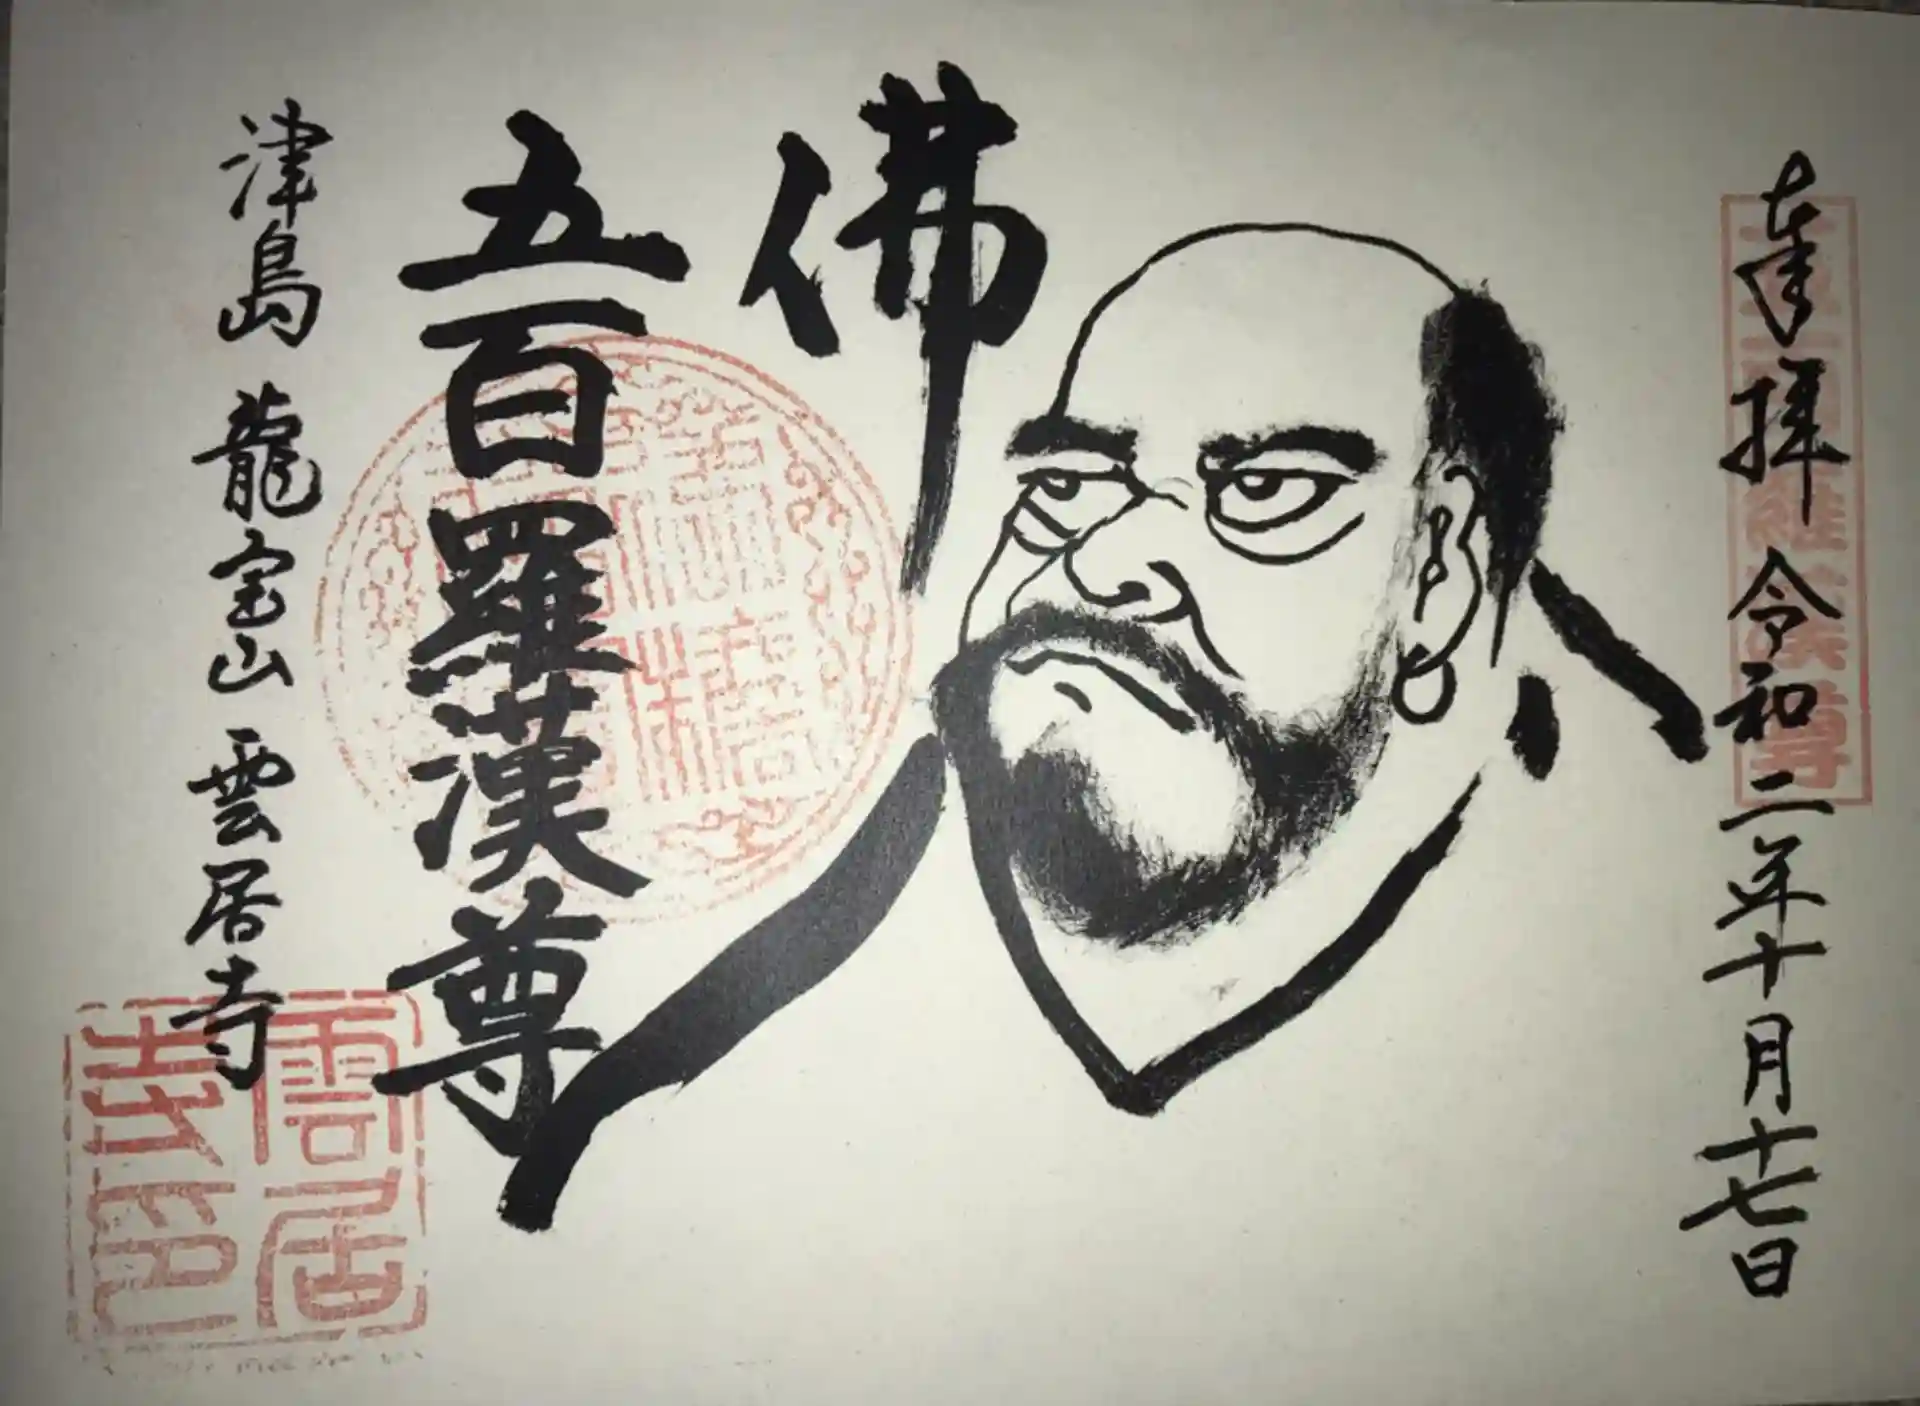 奉拝 令和二年十月十七日
五百羅漢尊
佛
五百羅漢尊
津島 龍宝山 雲居寺
雲居寺印